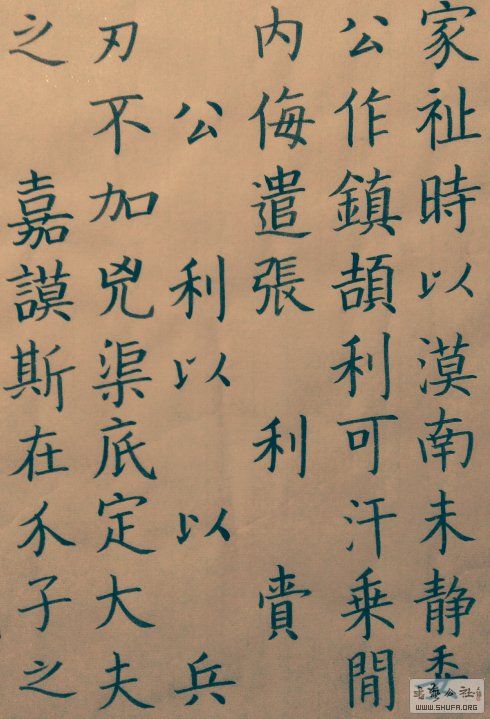 家祉時以漠南未静
公作鎮頡利可汗乘閒
内侮遣張 利
公 利以 以 兵
刃不加兇渠底定大夫
之 嘉謨斯在介子之
WWW.SHUFA.ORG